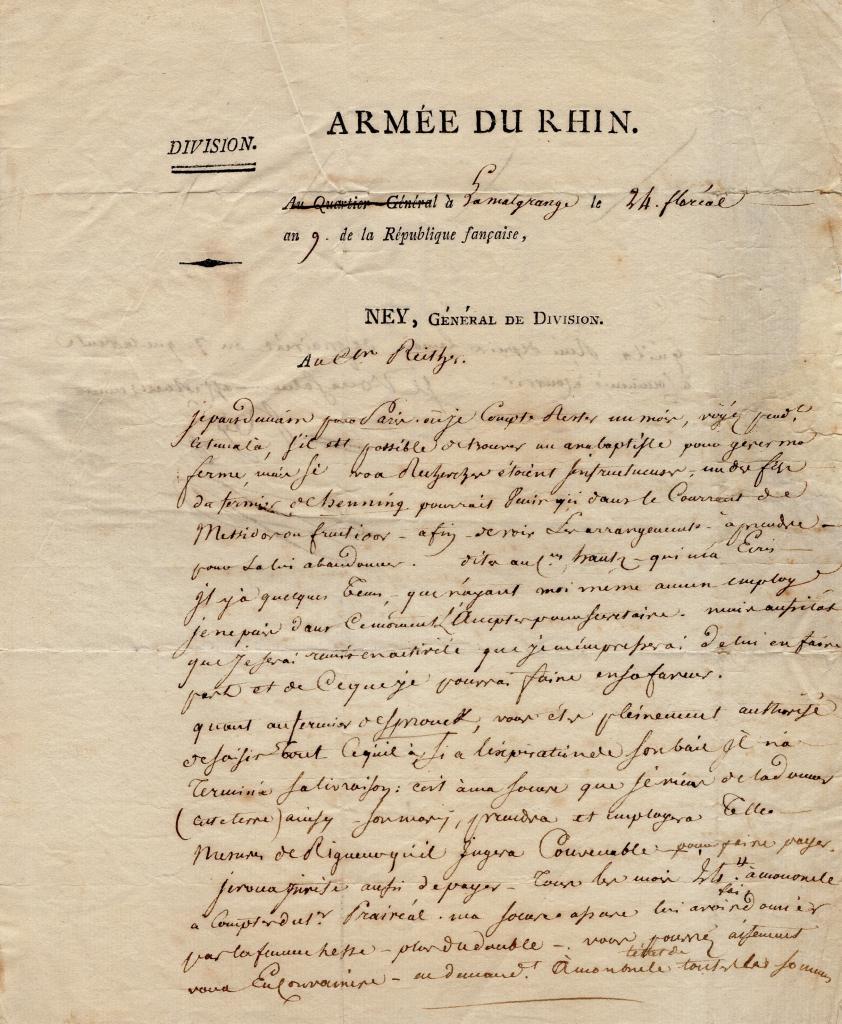 ARMÉE DU RHIN.
DIVISION.
Au Quartier Général à Lamalgrange le 24. floréal
an 9. de la République fançaise,
NEY, GÉNÉRAL DE DIVISION.
Au Cen Reither.
je pars demain pour Paris. où je Compte Rester un mois, voyé pendt
cetems là, s'il est possible de trouver un anabaptiste pour gérer ma
ferme, mais si vos Recherches étoient infructueuses, un des fils
du fermier de henning pourrait Venir ici dans le Courrant de
Messidor ou fructidor - afin de voir Les arrangements à prendre
pour La lui abandonner. dite au Cen hautz qui m'a Ecris
il y à quelques Tems, que n'ayant moi même aucun employ
je ne puis dans Cemoment l'Accepter pour secretaire. mais aussitôt
que je serai remis en activité que je m'empresserai de lui en faire
part et de Ceque je pourrai faire en sa faveur.
quant au fermier de , vous éte pleinement authorisé
de saisir Tout Cequil à, si a l'expiration de son bail Il n'a
Terminé sa livraison: c'est à ma soeur que je viens de la donner
(cette terre) ainsy son mary, prendra et employera Telles
Mesures de Rigueur qu'il Jugera Convenable pour faire payer.
je vous invite aussi de payer - Tous les mois à mon oncle
a Compter du 1er Prairéal. ma soeur assure lui avoir donné
par la femme hesse - plus du double -. vous pourrez aisement
vous En Convaincre - en demandt à mon oncle toutes les sommes